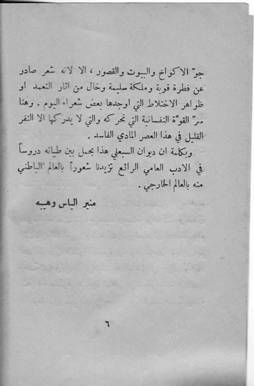 جوّ الاكواخ والبيوت والقصور ، الا لانه شعر صادر
عن فطرة قوية وملكة سليمة وخال من اثار التعمد او
ظواهر الاختلاط التي اوجدها بعض شعراء اليوم . وهنا
سرّ القوّة النفسانية التي تحركه والتي لا يدركها الا النفر
القليل في هذا العصر المادي الفاسد .
وبكلمة ان ديوان السبعلي هذا يحمل بين طياته دروساً
في الادب العامي الرائع تزيدنا شعوراً بالعالم الباطني
منه بالعالم الخارجي .
منير الياس وهيبه
٦